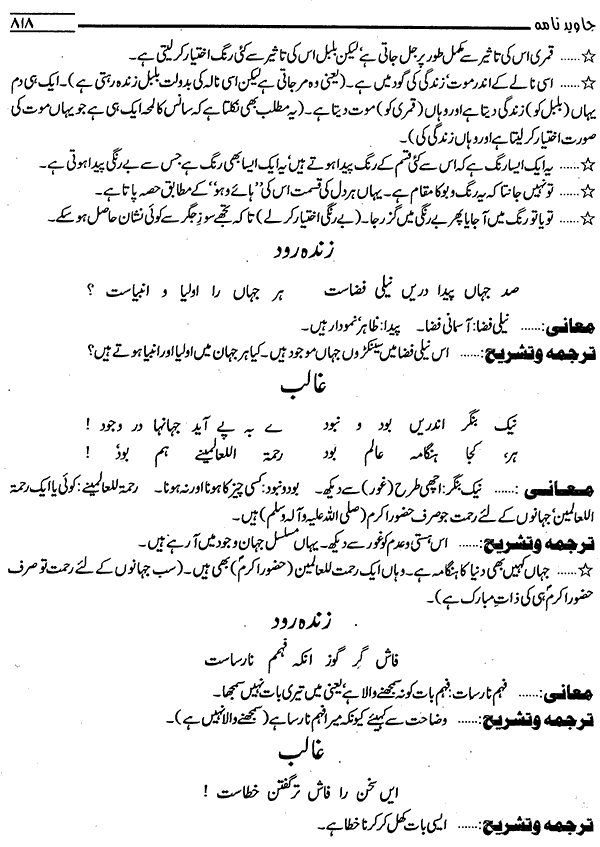 جاوید نامہ ۸۱۸
☆...... قمری اس کی تاثیر سے مکمل طور پر جل جاتی ہے‘ لیکن بلبل اس کی تاثیر سے کئی رنگ اختیار کر لیتی ہے۔
☆...... اسی نالے کے اندر موت‘ زندگی کی گود میں ہے۔ (یعنی وہ مر جاتی ہے لیکن اسی نالہ کی بدولت بلبل زندہ رہتی ہے)۔ ایک ہی دم
یہاں (بلبل کو) زندگی دیتا ہے اور وہاں (قمری کو) موت دیتا ہے۔ (یہ مطلب بھی نکلتا ہے کہ سانس کا لمحہ ایک ہی ہے جو یہاں موت کی
صورت اختیار کر لیتا ہے اور وہاں زندگی کی)۔
☆...... یہ ایک ایسا رنگ ہے کہ اس سے کئی قسم کے رنگ پیدا ہوتے ہیں‘ یہ ایک ایسا بھی رنگ ہے جس سے بے رنگی پیدا ہوتی ہے۔
☆...... تو نہیں جانتا کہ یہ رنگ و بو کا مقام ہے۔ یہاں ہر دل کی قسمت اس کی ’’ہائے و ہو‘‘ کے مطابق حصہ پاتا ہے۔
☆...... تو یا تو رنگ میں آ جا یا پھر بے رنگی میں گزر جا۔ (بے رنگی اختیار کر لے) تا کہ تجھے سوز جگر سے کوئی نشان حاصل ہو سکے۔
زندہ رود
صد جہاں پیدا دریں نیلی فضاست ہر جہاں را اولیا و انبیاست ؟
معانی:...... نیلی فضا: آسمانی فضا۔ پیدا: ظاہر‘ نمودار ہیں۔
ترجمہ وتشریح:...... اس نیلی فضا میں سینکڑوں جہاں موجود ہیں۔ کیا ہر جہان میں اولیا اور انبیا ہوتے ہیں؟
غالب
نیک بنگر اندریں بود و نبود پے بہ پے آید جہانہا در وجود !
ہر کجا ہنگامہ عالم بود رحمۃ اللعالمینے ہم بود !
معانی:...... نیک بنگر: اچھی طرح (غور) سے دیکھ۔ بود و نبود: کسی چیز کا ہونا اور نہ ہونا۔ رحمۃ للعالمینے: کوئی یا ایک رحمۃ
اللعالمین‘ جہانوں کے لئے رحمت جو صرف حضور اکرم (صلی اللہ علیہ وآلہ وسلم) ہیں۔
ترجمہ وتشریح:...... اس ہستی و عدم کو غور سے دیکھ۔ یہاں مسلسل جہان وجود میں آ رہے ہیں۔
☆...... جہاں کہیں بھی دنیا کا ہنگامہ ہے۔ وہاں ایک رحمت للعالمین (حضور اکرمؐ) بھی ہیں۔ (سب جہانوں کے لئے رحمت تو صرف
حضور اکرمؐ ہی کی ذاتِ مبارک ہے)۔
زندہ رود
فاش گر گوز انکہ فہمم نارساست
معانی:...... فہمم نارسات: فہم بات کو نہ سمجھنے والا ہے‘ یعنی میں تیری بات نہیں سمجھا۔
ترجمہ وتشریح:...... وضاحت سے کہیئے کیونکہ میرا فہم نارسا ہے (سمجھنے والا نہیں ہے)۔
غالب
ایں سخن را فاش تر گفتن خطاست !
ترجمہ وتشریح:...... ایسی بات کھل کر کرنا خطا ہے۔